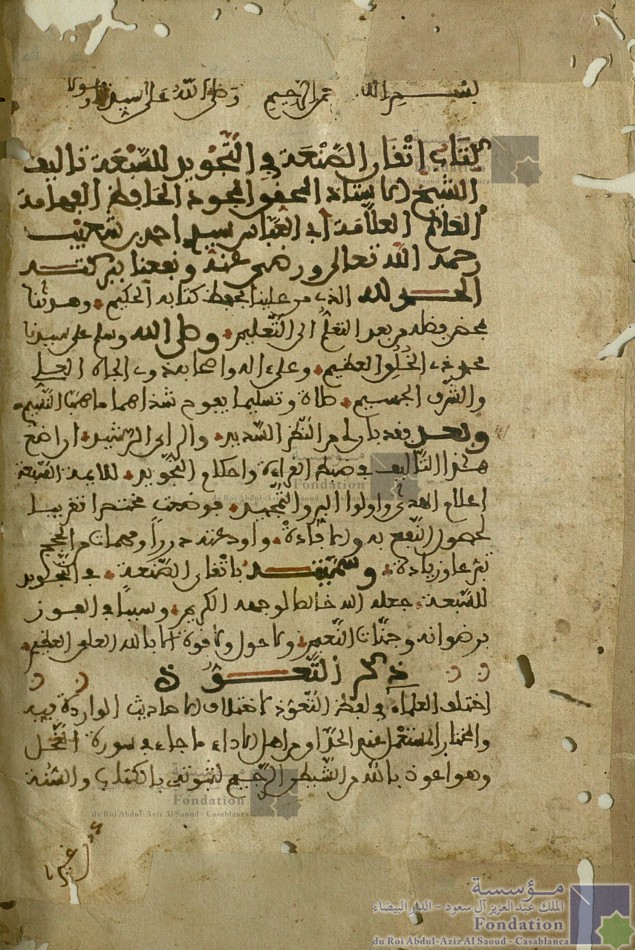 بسم الله الرحمن الرحيم وصلى الله على سيدنا ومولانا
كتاب إتقان الصنعة في التجويد للسبعة تأليف
الشيخ الأستاذ المحقق المجود الحافظ الفهامة
العالم العلامة أبي العباس سيد أحمد بن شعيب
رحمه الله تعالى ورضي عنه ونفعنا ببركته
الحمد لله الذي من علينا بحفظ كتابه الحكيم وهدانا
بمحض فضله من بعد التعلم إلى التعليم وصلى الله وسلم على سيدنا
محمد ذي الخلق العظيم وعلى آله وأصحابه ذوي الجاه العلي
والشرف الجسيم صلاة وتسليما يفوح شذاهما ما هب النسيم
وبعد فقد بان لي من النظر السديد والرأي الرشيد أن أضع
هذا التأليف في ضبط القراءة وأحكام التجويد للأئمة السبعة
أعلام الهدى وأولوا البر والتمجيد فوضعت مختصرا تقريبا
لحصول النفع به والإفادة وأودعته دررا ومهمات من الحجج
تبرعا وزيادة وسميته بإتقان الصنعة في التجويد
للسبعة جعله الله خالصا لوجهه الكريم وسببا في الفوز
برضوانه وجنات النعيم ولا حول ولا قوة إلا بالله العلي العظيم
ذكر التعوذ
اختلف العلماء في لفظ التعوذ لاختلاف الأحاديث الواردة فيه
والمختار المستعمل عند الحذاق من أهل الأداء ما جاء في سورة النحل
وهو أعوذ بالله من الشيطن الرجيم لثبوته بالكتاب والسنة
غير
مؤسسة
الملك عبد العزيز آل سعود - الدار البيضاء
Fondation
du Roi Abdul-Aziz Al Saoud - Casablanca